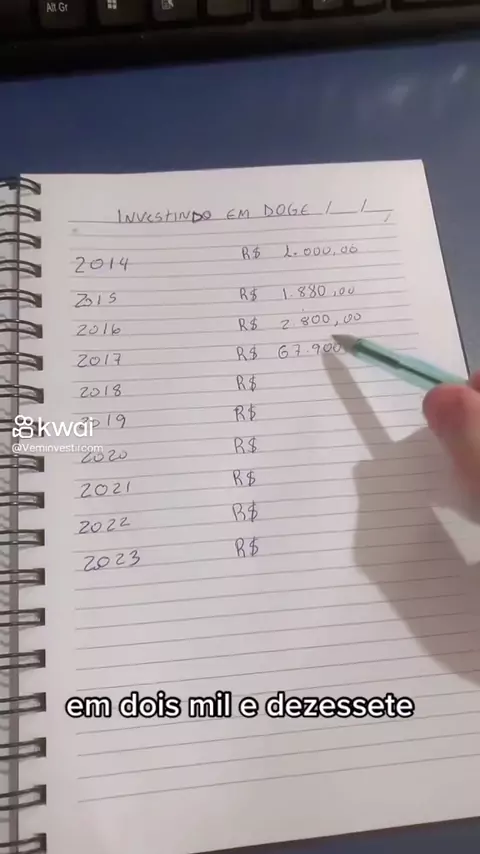 Alt Gr
INVESTINDO EM DOGE /__/
2014 R$ 1.000,00
2015 R$ 1.880,00
2016 R$ 2.800,00
2017 R$ 67.900
2018 R$
2019 R$
kwai
@Veminvesti.com
2020 R$
2021 R$
2022 R$
2023 R$
em dois mil e dezessete